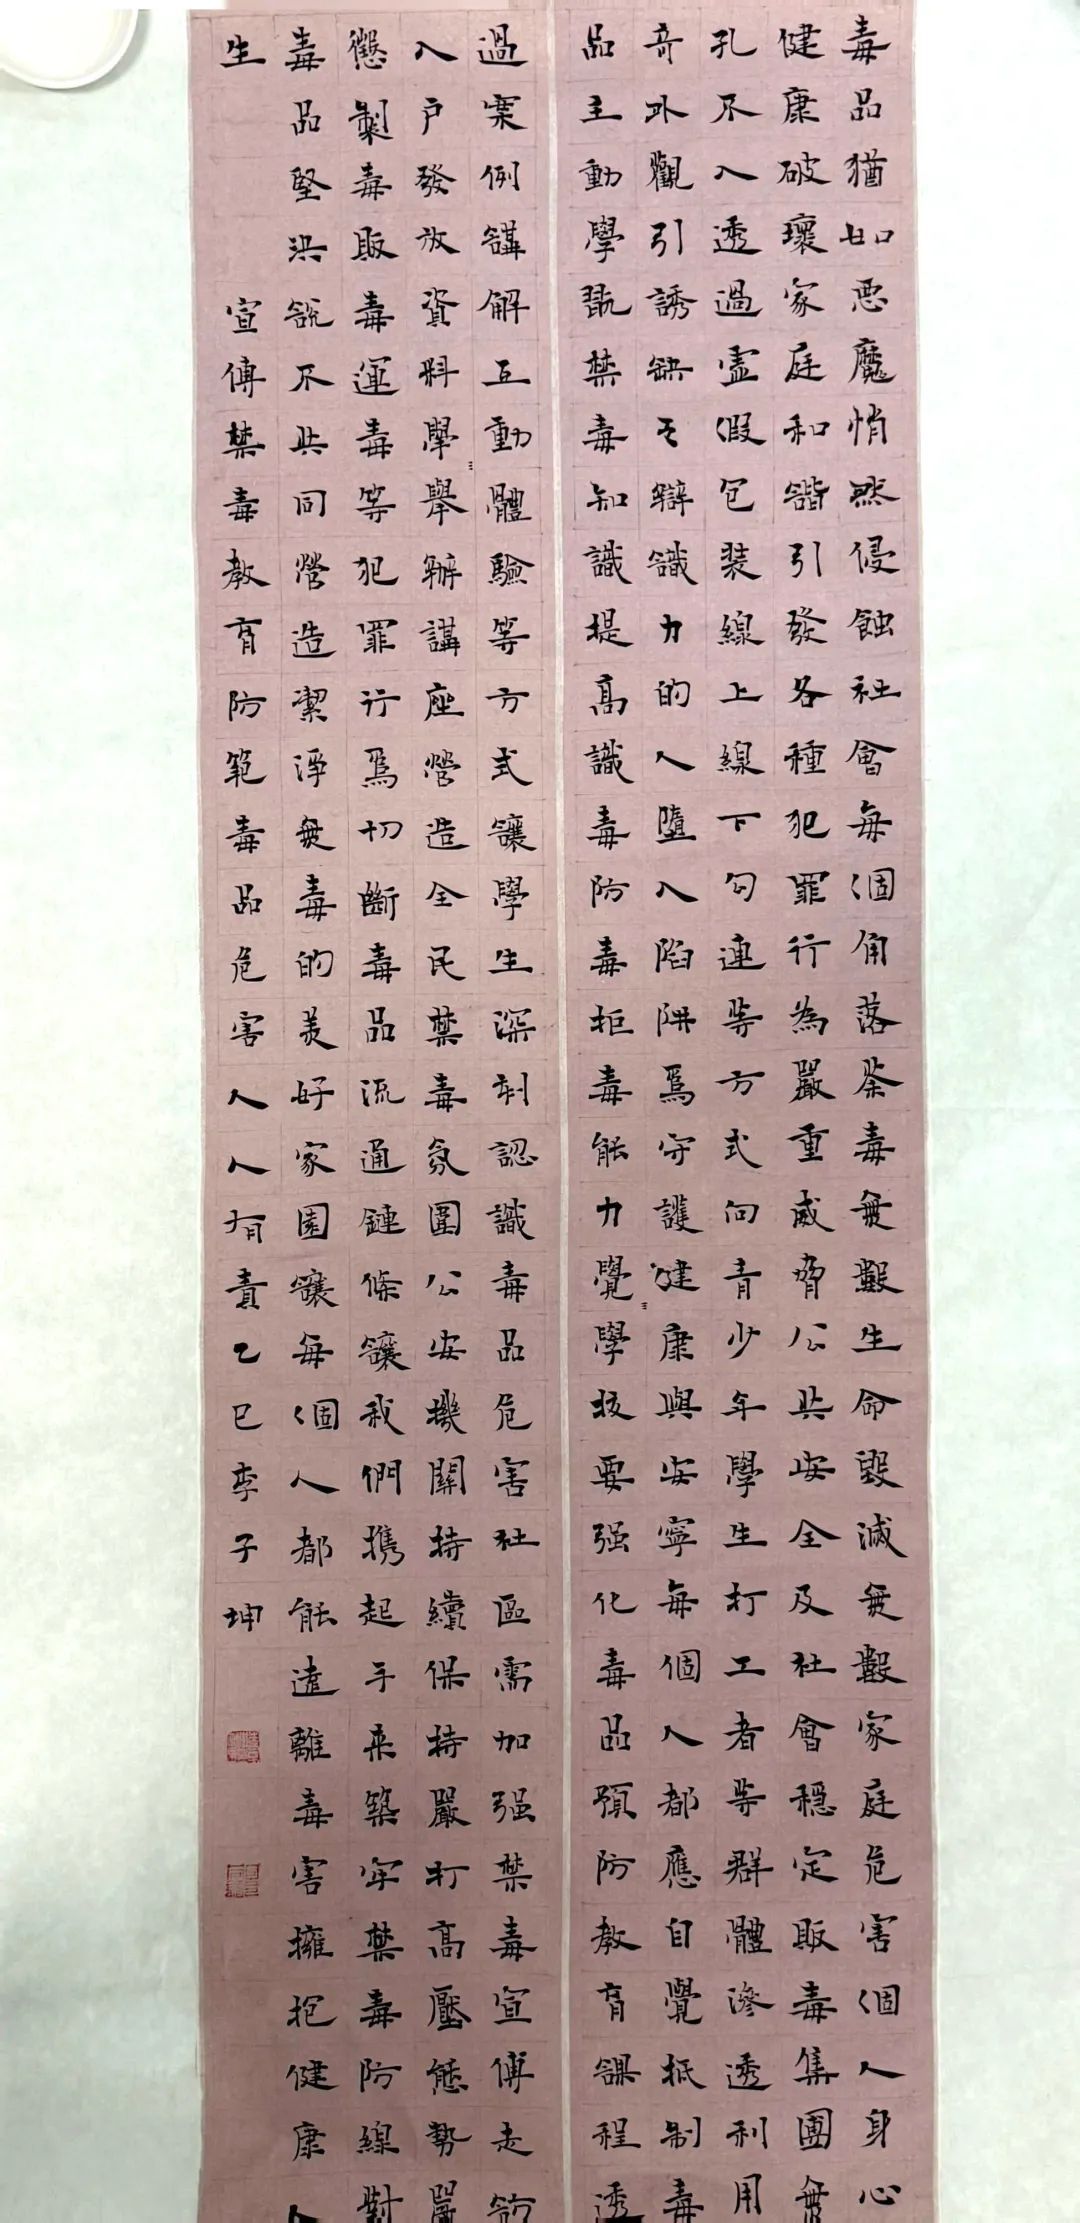 毒品猶如惡魔悄然侵蝕社會每個角落荼毒無數生命毀滅無數家庭危害個人身心
健康破壞家庭和諧引發各種犯罪行為嚴重威脅公共安全及社會穩定販毒集團無
孔不入透過虛假包裝線上線下勾連等方式向青少年學生打工者等群體滲透利用
奇外觀引誘缺乏辯識力的人墮入陷阱爲守護健康與安寧每個人都應自覺抵制毒
品主動學習禁毒知識提高識毒防毒拒毒能力覺學校要强化毒品預防教育課程透
過案例講解互動體驗等方式讓學生深刻認識毒品危害社區需加强禁毒宣傳走訪
入户發放資料學舉辦講座營造全民禁毒氛圍公安機關持續保持嚴打高壓態勢嚴
懲製毒販毒運毒等犯罪行爲切斷毒品流通鏈條讓我們携起手来築牢禁毒防線對
毒品堅決說不共同營造潔淨無毒的美好家園讓每個人都能遠離毒害擁抱健康人
生
宣傳禁毒教育防範毒品危害人人有責乙巳李子坤